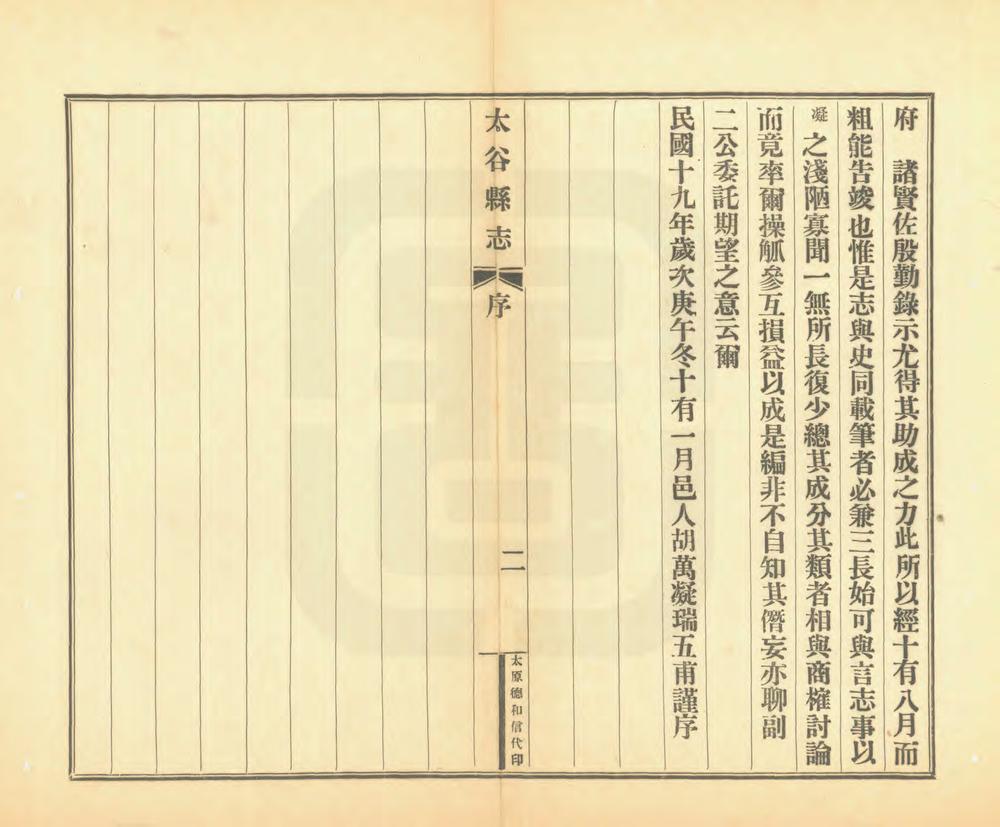 府　諸賢佐殷勤錄示尤得其助成之力此所以經十有八月而
粗能告竣也惟是志與史同載筆者必兼三長始可與言志事以
凝之淺陋寡聞一無所長復少總其成分其類者相與商榷討論
而竟率爾操觚參互損益以成是編非不自知其僭妄亦聊副
二公委託期望之意云爾
民國十九年歲次庚午冬十有一月邑人胡萬凝瑞五甫謹序
太谷縣志
序
二
太原德和信代印